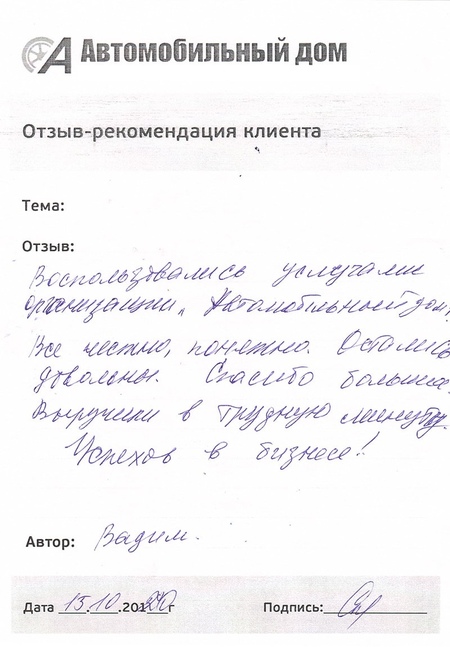 Автомобильный дом
Отзыв-рекомендация клиента
Тема:
Отзыв:
Воспользовались услугами
организации „Автомобильный дом"
Все честно, понятно. Остались
довольны. Спасибо большое.
Выручили в трудную минуту.
Успехов в бизнесе!
Автор: Вадим.
Дата 15.10.2020г Подпись: